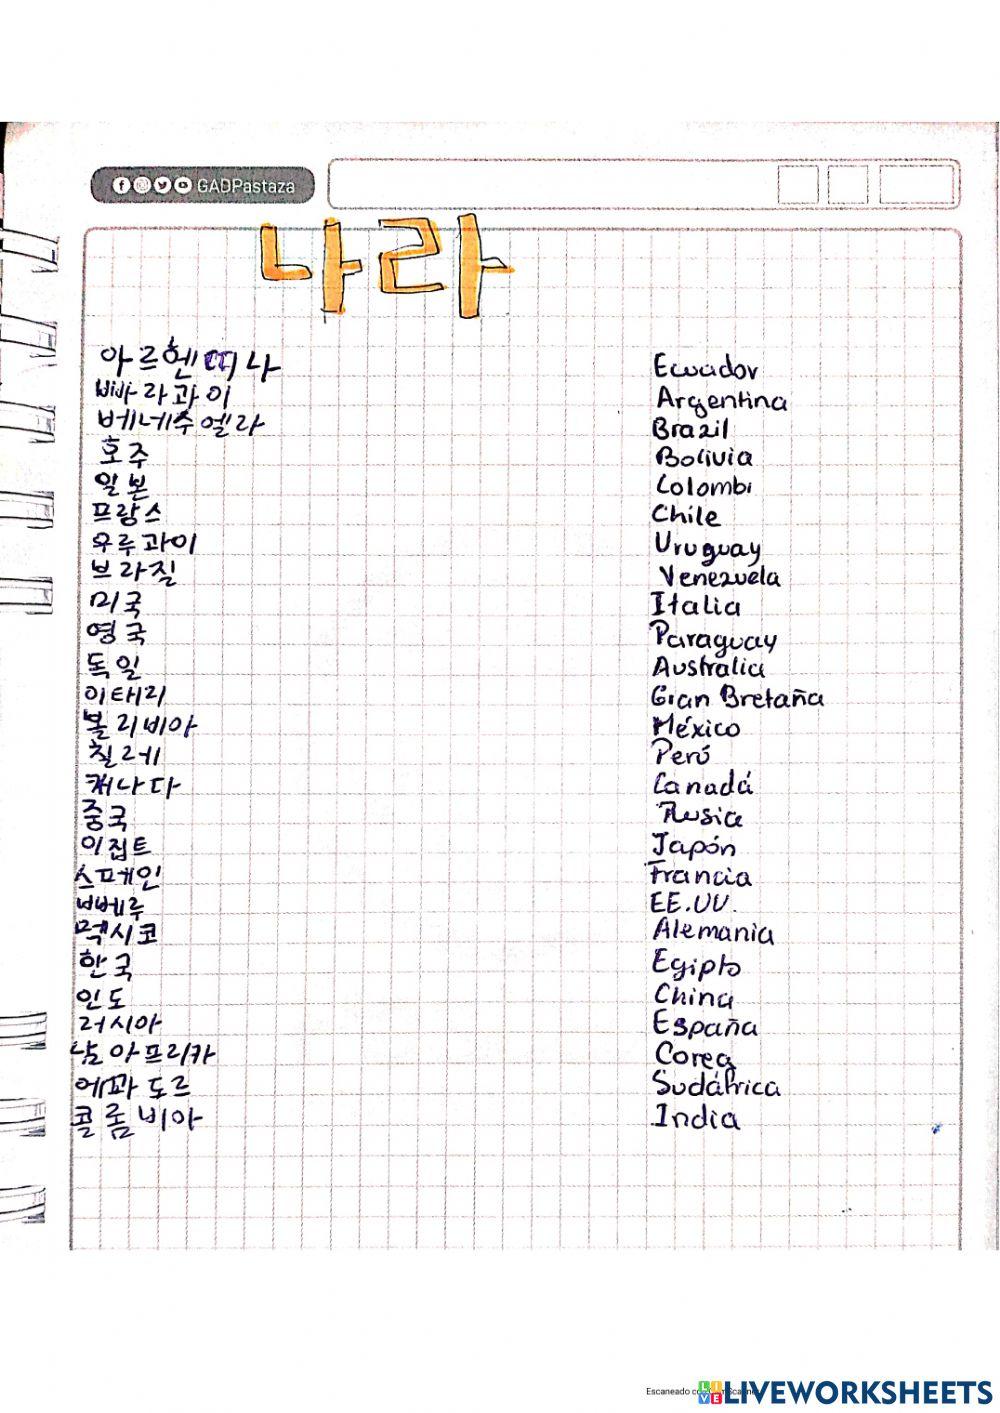 GADPastaza
나라
아르헨띠나 Ecuador
빠라과이 Argentina
베네수엘라 Brazil
호주 Bolivia
일본 Colombi
프랑스 Chile
우루과이 Uruguay
브라질 Venezuela
미국 Italia
영국 Paraguay
독일 Australia
이태리 Gran Bretaña
볼리비아 México
칠레 Perú
캐나다 Canadá
중국 Rusia
이집트 Japón
스페인 Francia
뻬루 EE.UU.
멕시코 Alemania
한국 Egipto
인도 China
러시아 España
남아프리카 Corea
에콰도르 Sudáfrica
콜롬비아 India
Escaneado
LIVEWORKSHEETS